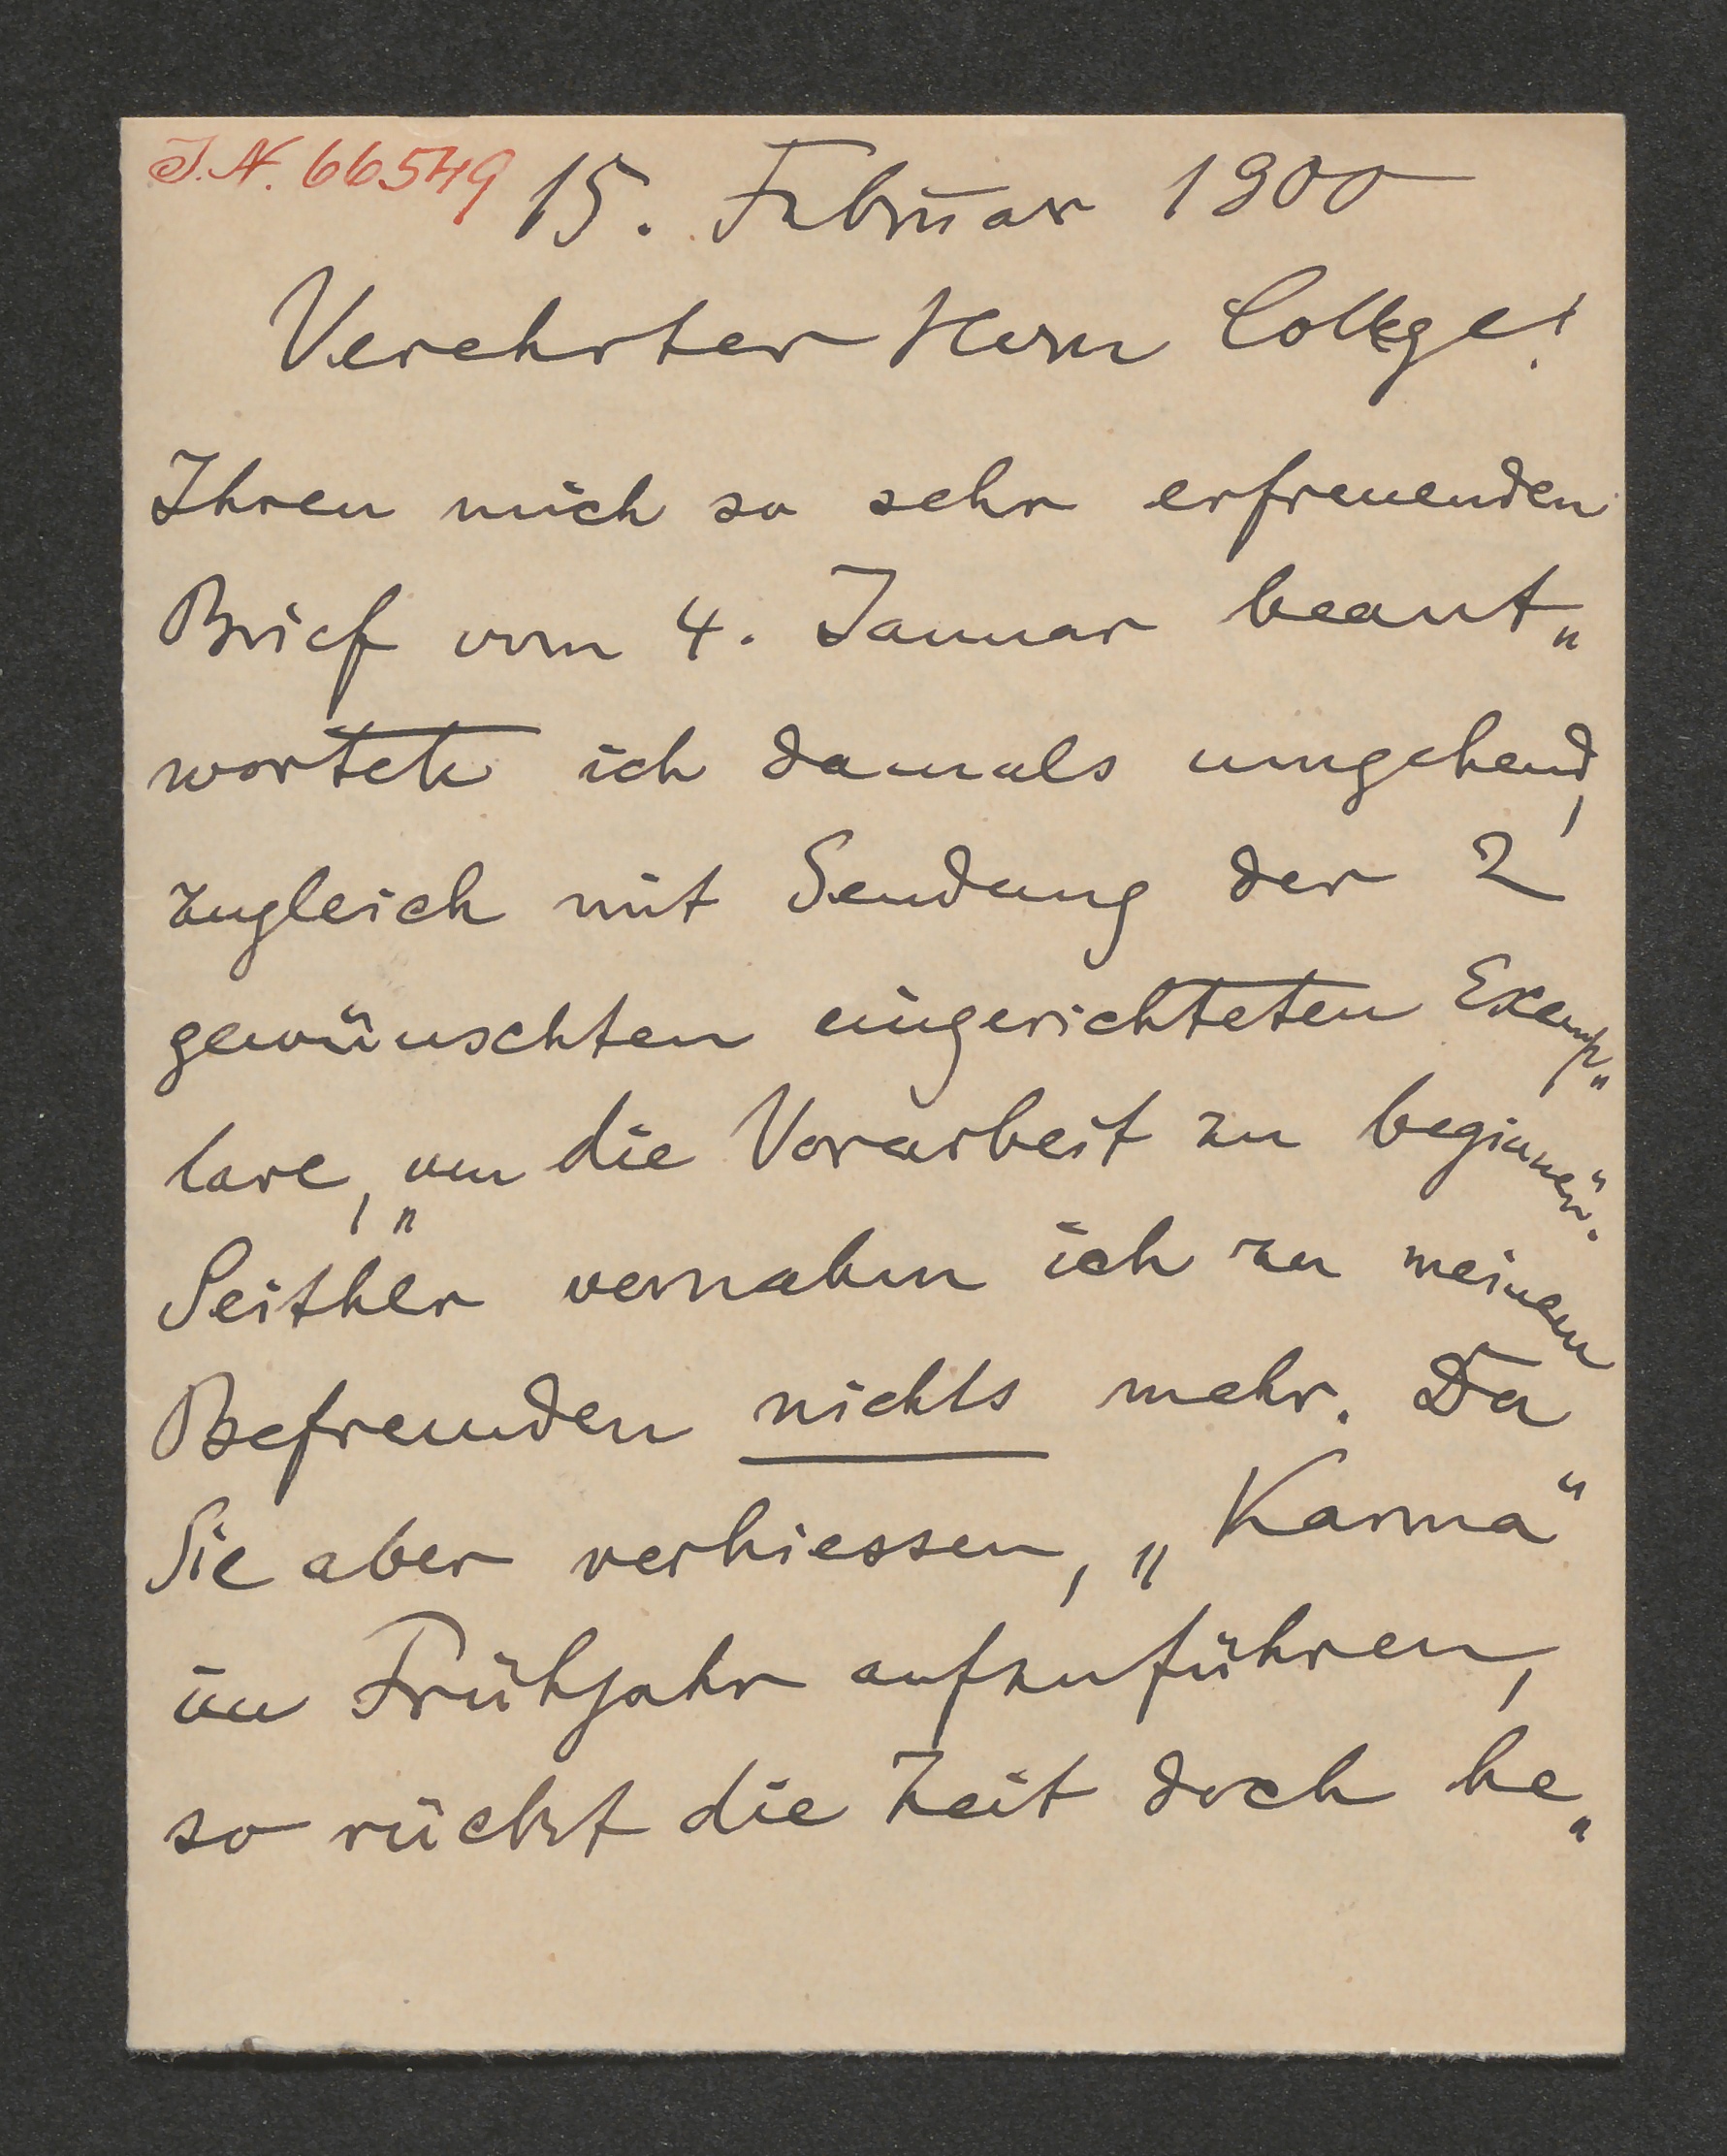 J.N. 66549
15. Februar 1900
Verehrter Herr College!
Ihren mich so sehr erfreuenden
Brief vom 4. Januar beant„
wortete ich damals umgehend,
zugleich mit Sendung der 2
gewünschten eingerichteten Exemp„
lare, „um die Vorarbeit zu beginnen“.
Seither vernahm ich zu meinem
Befremden nichts mehr. Da
Sie aber verhiessen, „Karma“
im Frühjahr aufzuführen,
so rückt die Zeit doch be„